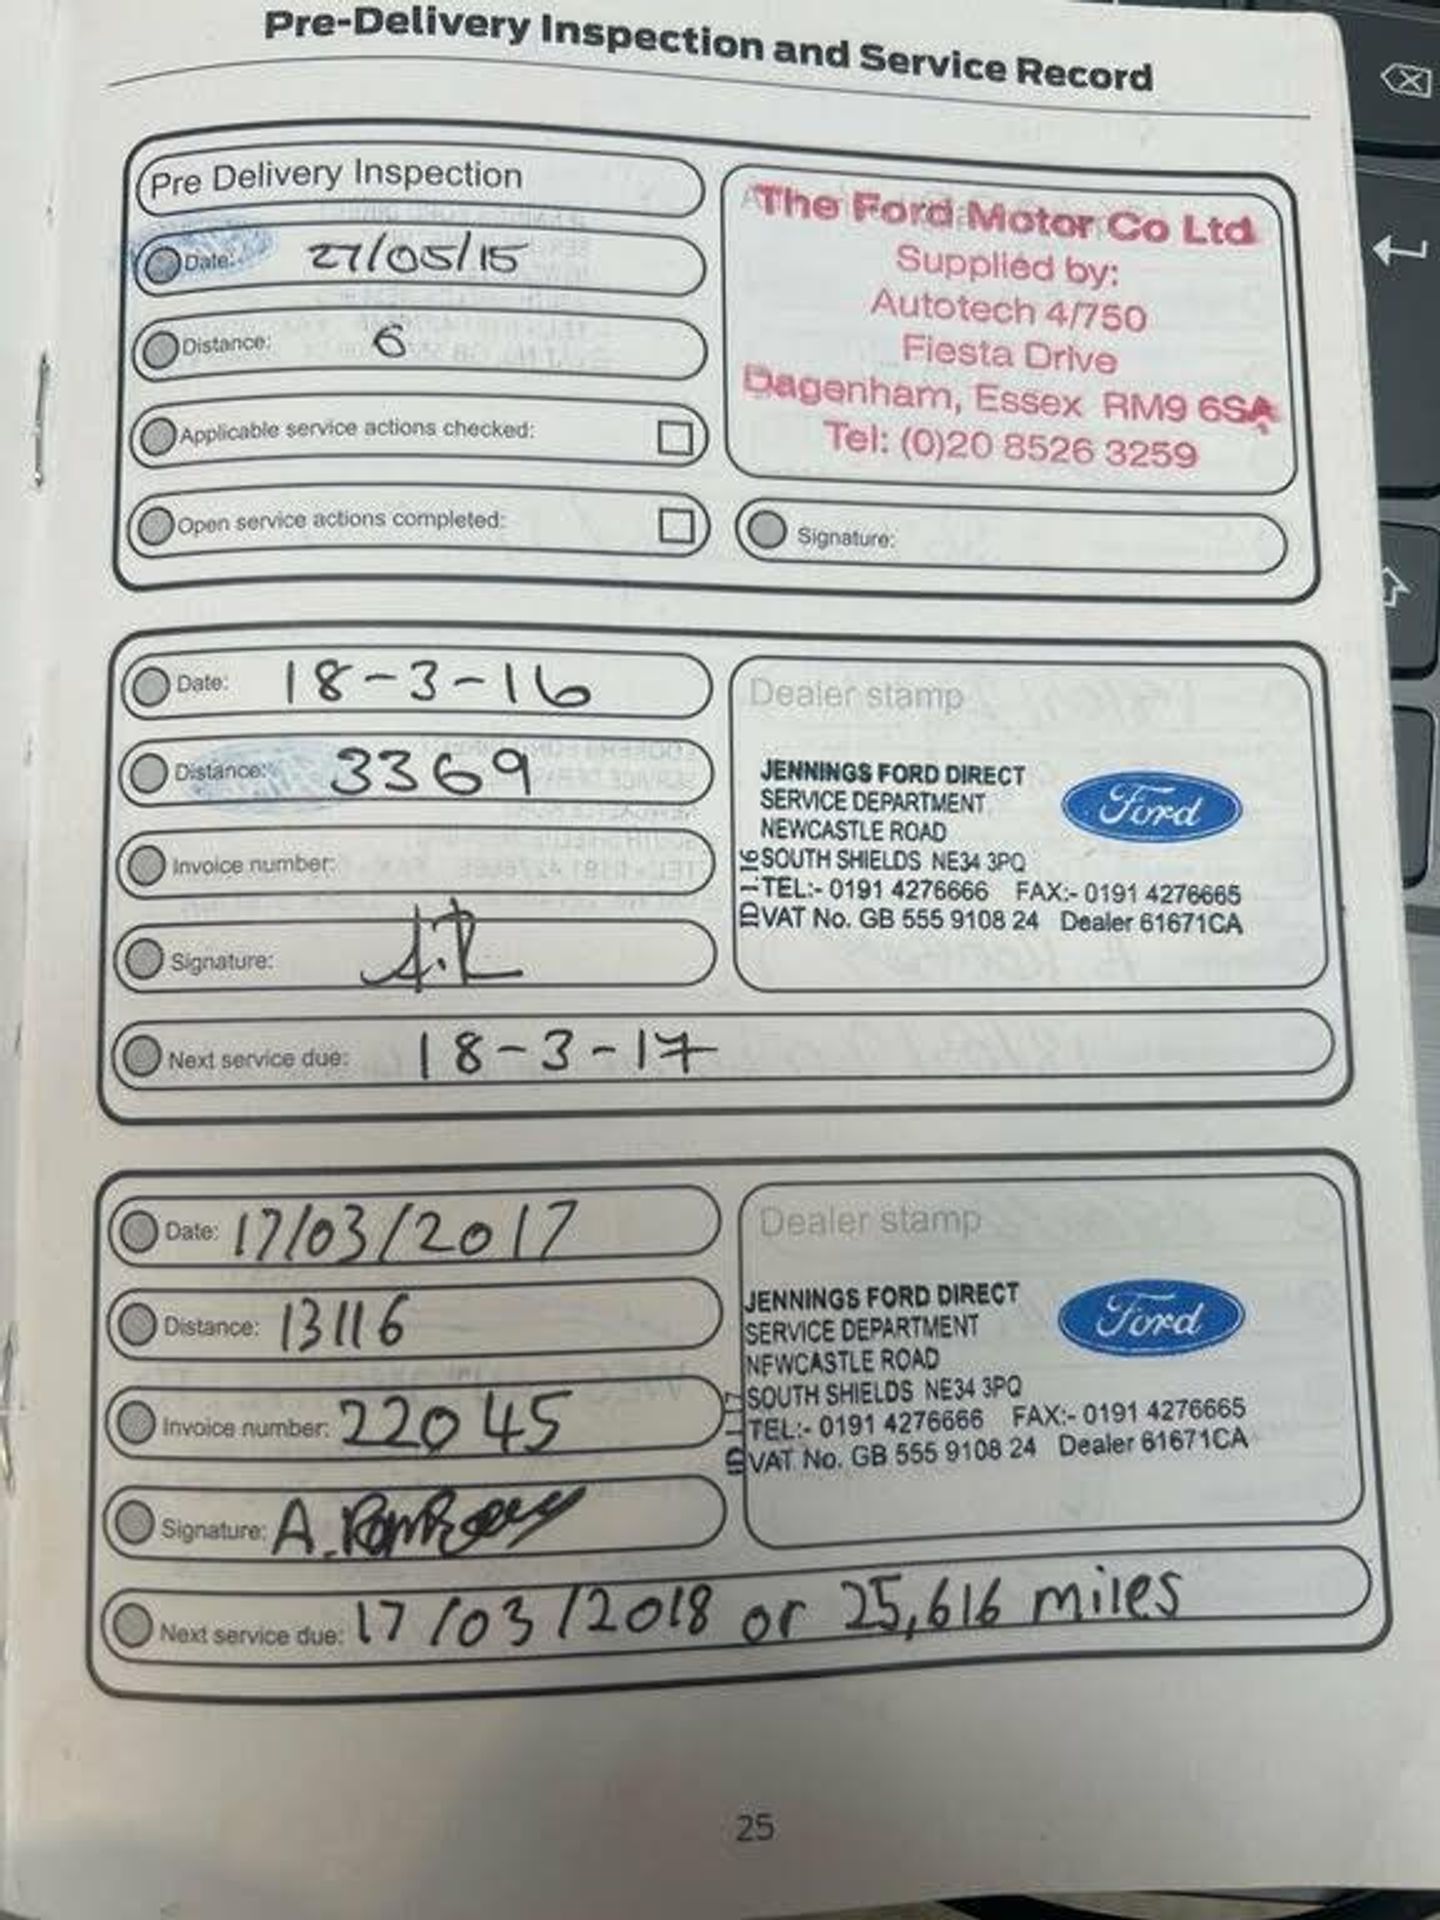 Pre-Delivery Inspection and Service Record
Pre Delivery Inspection
Date: 27/05/15
Distance: 6
Applicable service actions checked:
Open service actions completed:
The Ford Motor Co Ltd
Supplied by:
Autotech 4/750
Fiesta Drive
Dagenham, Essex RM9 6SA
Tel: (0)20 8526 3259
Signature:
Date: 18-3-16
Distance: 3369
Invoice number:
Signature: A.R
Next service due: 18-3-17
Dealer stamp
JENNINGS FORD DIRECT
SERVICE DEPARTMENT
NEWCASTLE ROAD
SOUTH SHIELDS NE34 3PQ
TEL:- 0191 4276666 FAX:- 0191 4276665
VAT No. GB 555 9108 24 Dealer 61671CA
ID 1.16
Ford
Date: 17/03/2017
Distance: 13116
Invoice number: 22045
Signature: A.
Next service due: 17/03/2018 or 25,616 miles
Dealer stamp
JENNINGS FORD DIRECT
SERVICE DEPARTMENT
NEWCASTLE ROAD
SOUTH SHIELDS NE34 3PQ
TEL:- 0191 4276666 FAX:- 0191 4276665
VAT No. GB 555 9108 24 Dealer 61671CA
Ford
25